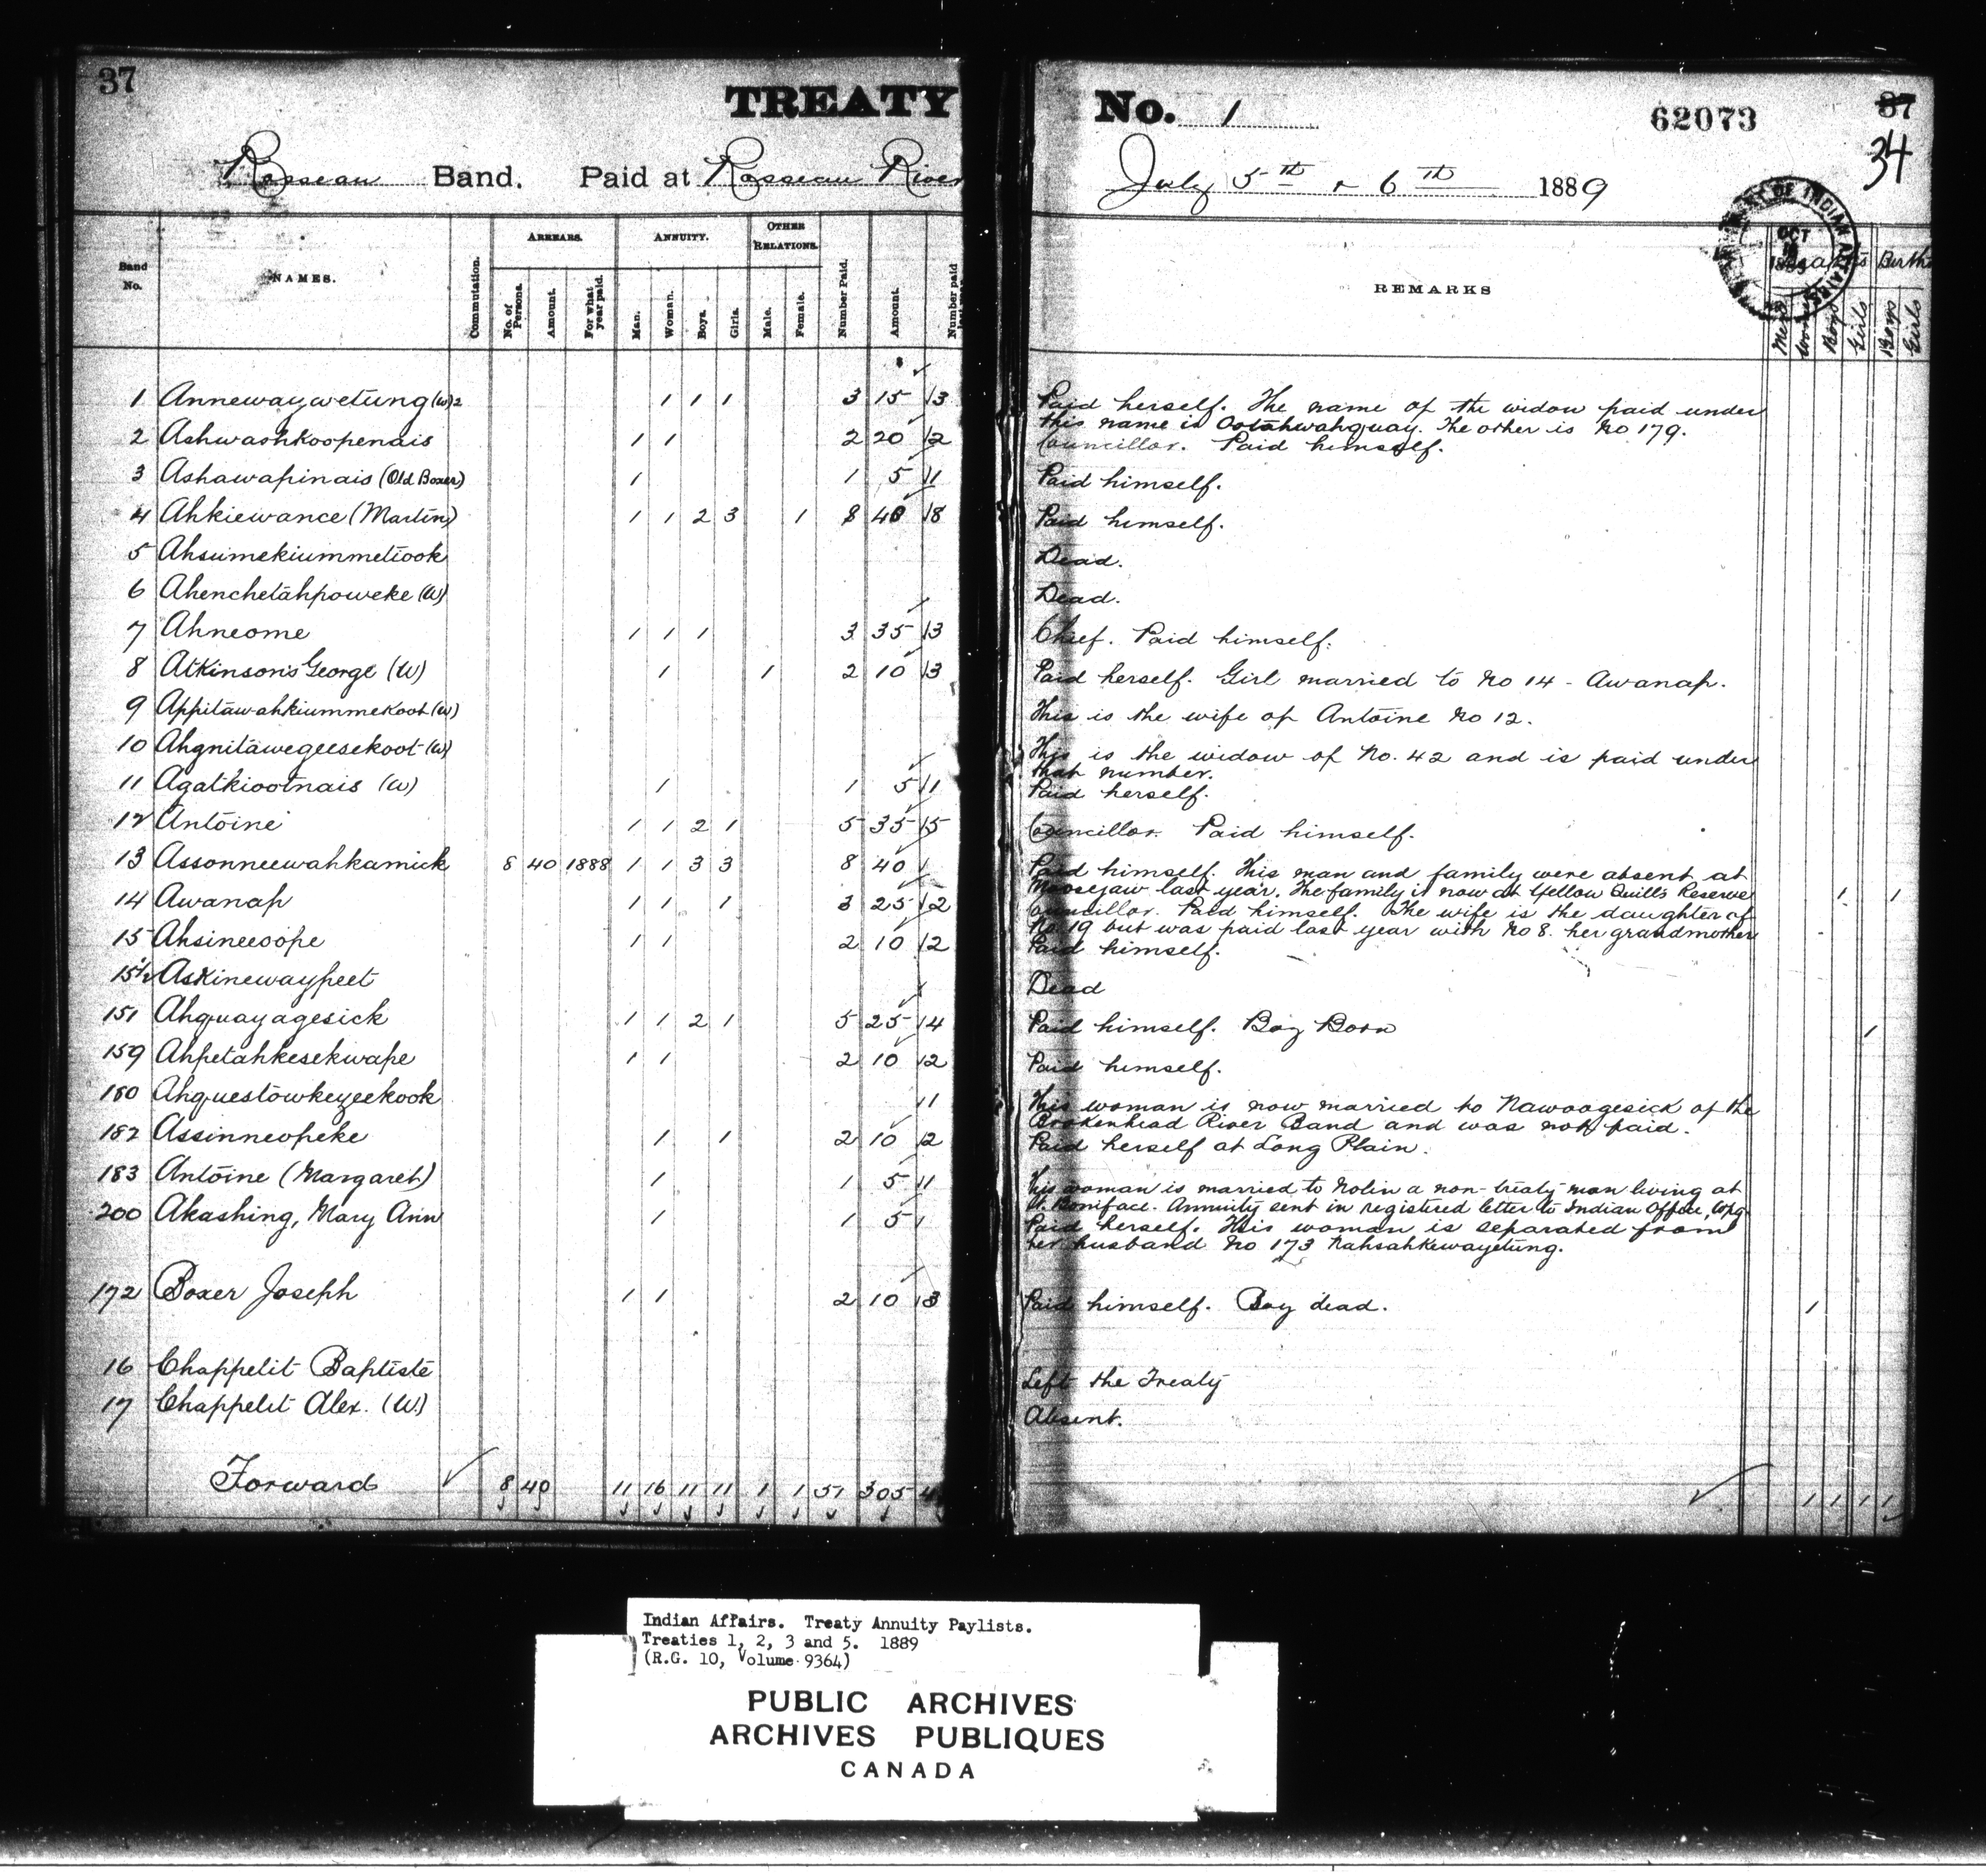 37
TREATY No. 1
62073
37
34
Rosseau Band. Paid at Rosseau River July 5th & 6th 1889
DEPARTMENT OF INDIAN AFFAIRS
OCT
Band No.
NAMES.
Commutation.
ARREARS.
No. of Persons.
Amount.
For what year paid.
ANNUITY.
Man.
Woman.
Boys.
Girls.
OTHER RELATIONS.
Male.
Female.
Number Paid.
Amount.
Number paid
REMARKS
Deaths Births
Men Women Boys Girls Boys Girls
1 Annewaywetung (W) 2 1 1 1 3 15 3 Paid herself. The name of the widow paid under
this name is Ootahwahquay. The other is No 179.
2 Ashwashkoopenais 1 1 2 20 2 Councillor. Paid himself.
3 Ashawapinais (Old Boxer) 1 1 5 1 Paid himself.
4 Ahkiewance (Martin) 1 1 2 3 1 8 40 8 Paid himself.
5 Ahsumekiummetiook Dead.
6 Ahenchetahpoweke (W) Dead.
7 Ahneome 1 1 1 3 35 3 Chief. Paid himself.
8 Atkinson's George (W) 1 1 2 10 3 Paid herself. Girl married to No 14 - Awanap.
9 Appitawahkiummekoot (W) This is the wife of Antoine No 12.
10 Ahgnitawegeesekoot (W) This is the widow of No. 42 and is paid under
that number.
11 Agatkiootnais (W) 1 1 5 1 Paid herself.
12 Antoine 1 1 2 1 5 35 5 Councillor. Paid himself.
13 Assonneewahkamick 8 40 1888 1 1 3 3 8 40 Paid himself. This man and family were absent at
Moosejaw last year. The family is now at Yellow Quill's Reserve 1 1
14 Awanap 1 1 1 3 25 2 Councillor. Paid himself. The wife is the daughter of
No. 19 but was paid last year with No 8. her grandmother
15 Ahsineeoope 1 1 2 10 2 Paid himself.
15½ Askinewaypeet Dead
151 Ahquayagesick 1 1 2 1 5 25 4 Paid himself. Boy Born 1
159 Ahpetahkesekwape 1 1 2 10 2 Paid himself.
180 Ahquestowkeyeekook 1 This woman is now married to Nawoogesick of the
Brokenhead River Band and was not paid.
182 Assinneopeke 1 1 2 10 2 Paid herself at Long Plain.
183 Antoine (Margaret) 1 1 5 1 This woman is married to Nolin a non-treaty man living at
St. Boniface. Annuity sent in registered letter to Indian Office, Wpg.
200 Akashing, Mary Ann 1 1 5 1 Paid herself. This woman is separated from
her husband No 173 Nahsahkewayetung.
172 Boxer Joseph 1 1 2 10 3 Paid himself. Boy dead. 1
16 Chappelit Baptiste Left the Treaty
17 Chappelit Alex. (W) Absent.
Forward 8 40 11 16 11 11 1 1 51 305 1 1 1 1
Indian Affairs. Treaty Annuity Paylists.
Treaties 1, 2, 3 and 5. 1889
(R.G. 10, Volume 9364)
PUBLIC ARCHIVES
ARCHIVES PUBLIQUES
CANADA